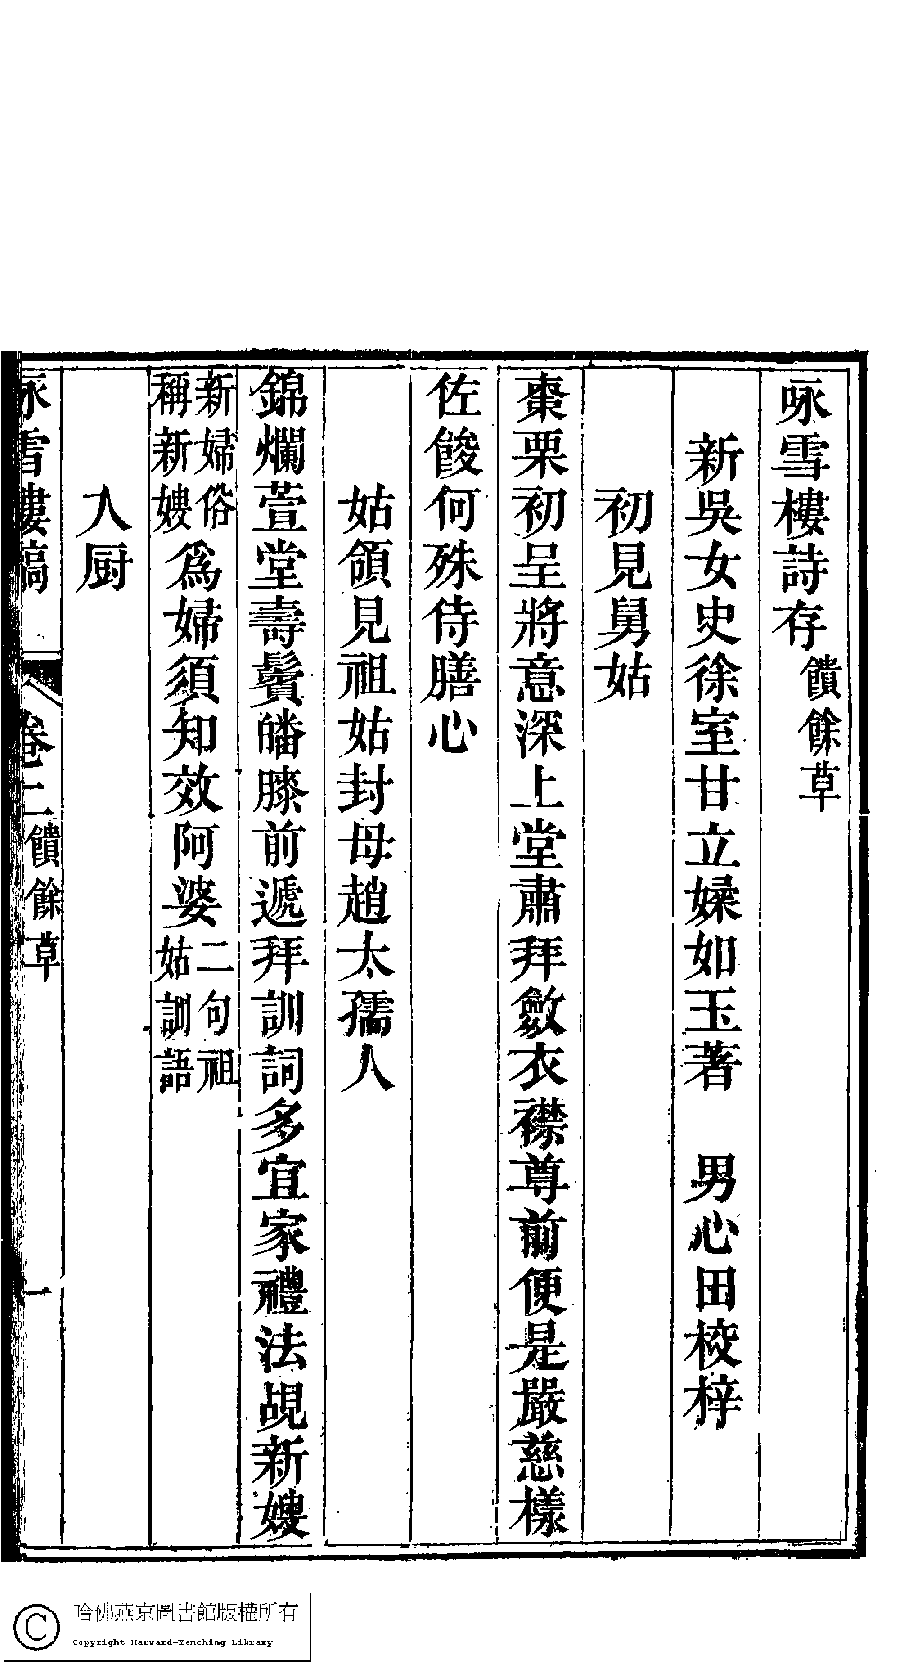 咏雪樓詩存饋餘草
新吳女史徐室甘立媃如玉著　男心田校梓
初見舅姑
棗栗初呈將意深上堂肅拜斂衣襟尊前便是嚴慈樣
佐餕何殊侍膳心
姑領見祖姑封母趙太孺人
錦爛萱堂壽鬢皤膝前遞拜訓詞多宜家禮法覘新嫂
新婦俗稱新嫂爲婦須知效阿婆二句祖姑訓語
入厨
咏雪樓稿　卷二饋餘草　一
哈佛燕京圖書館版權所有
Copyright Harvard-Yenching Library